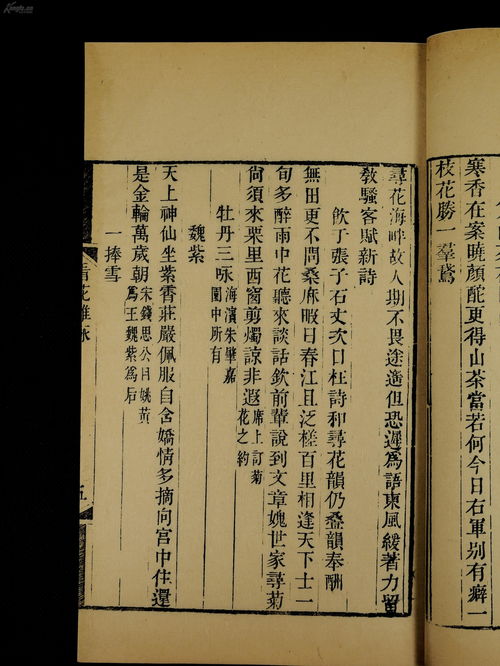 寒香在案曉顏酡更得山茶當若何今日右軍別有癖一
枝花勝一羣鵞
尋花海畔故人期不畏途遙但恐遲爲語東風緩著力留
敎騷客賦新詩
飲于張子石丈次日枉詩和尋花韻仍疊韻奉酬
無田更不問桑麻暇日春江且泛槎百里相逢天下士二
旬多醉雨中花聽來談話欽前輩說到文章媿世家尋菊
尙須來栗里西窗剪燭諒非遐席上訂菊花之約
牡丹三咏海濱朱肇嘉園中所有
魏紫
天上神仙坐紫香莊嚴佩服自含嬌情多摘向宮中住還
是金輪萬歲朝宋錢思公目姚黃爲王魏紫爲后
一捧雪
五